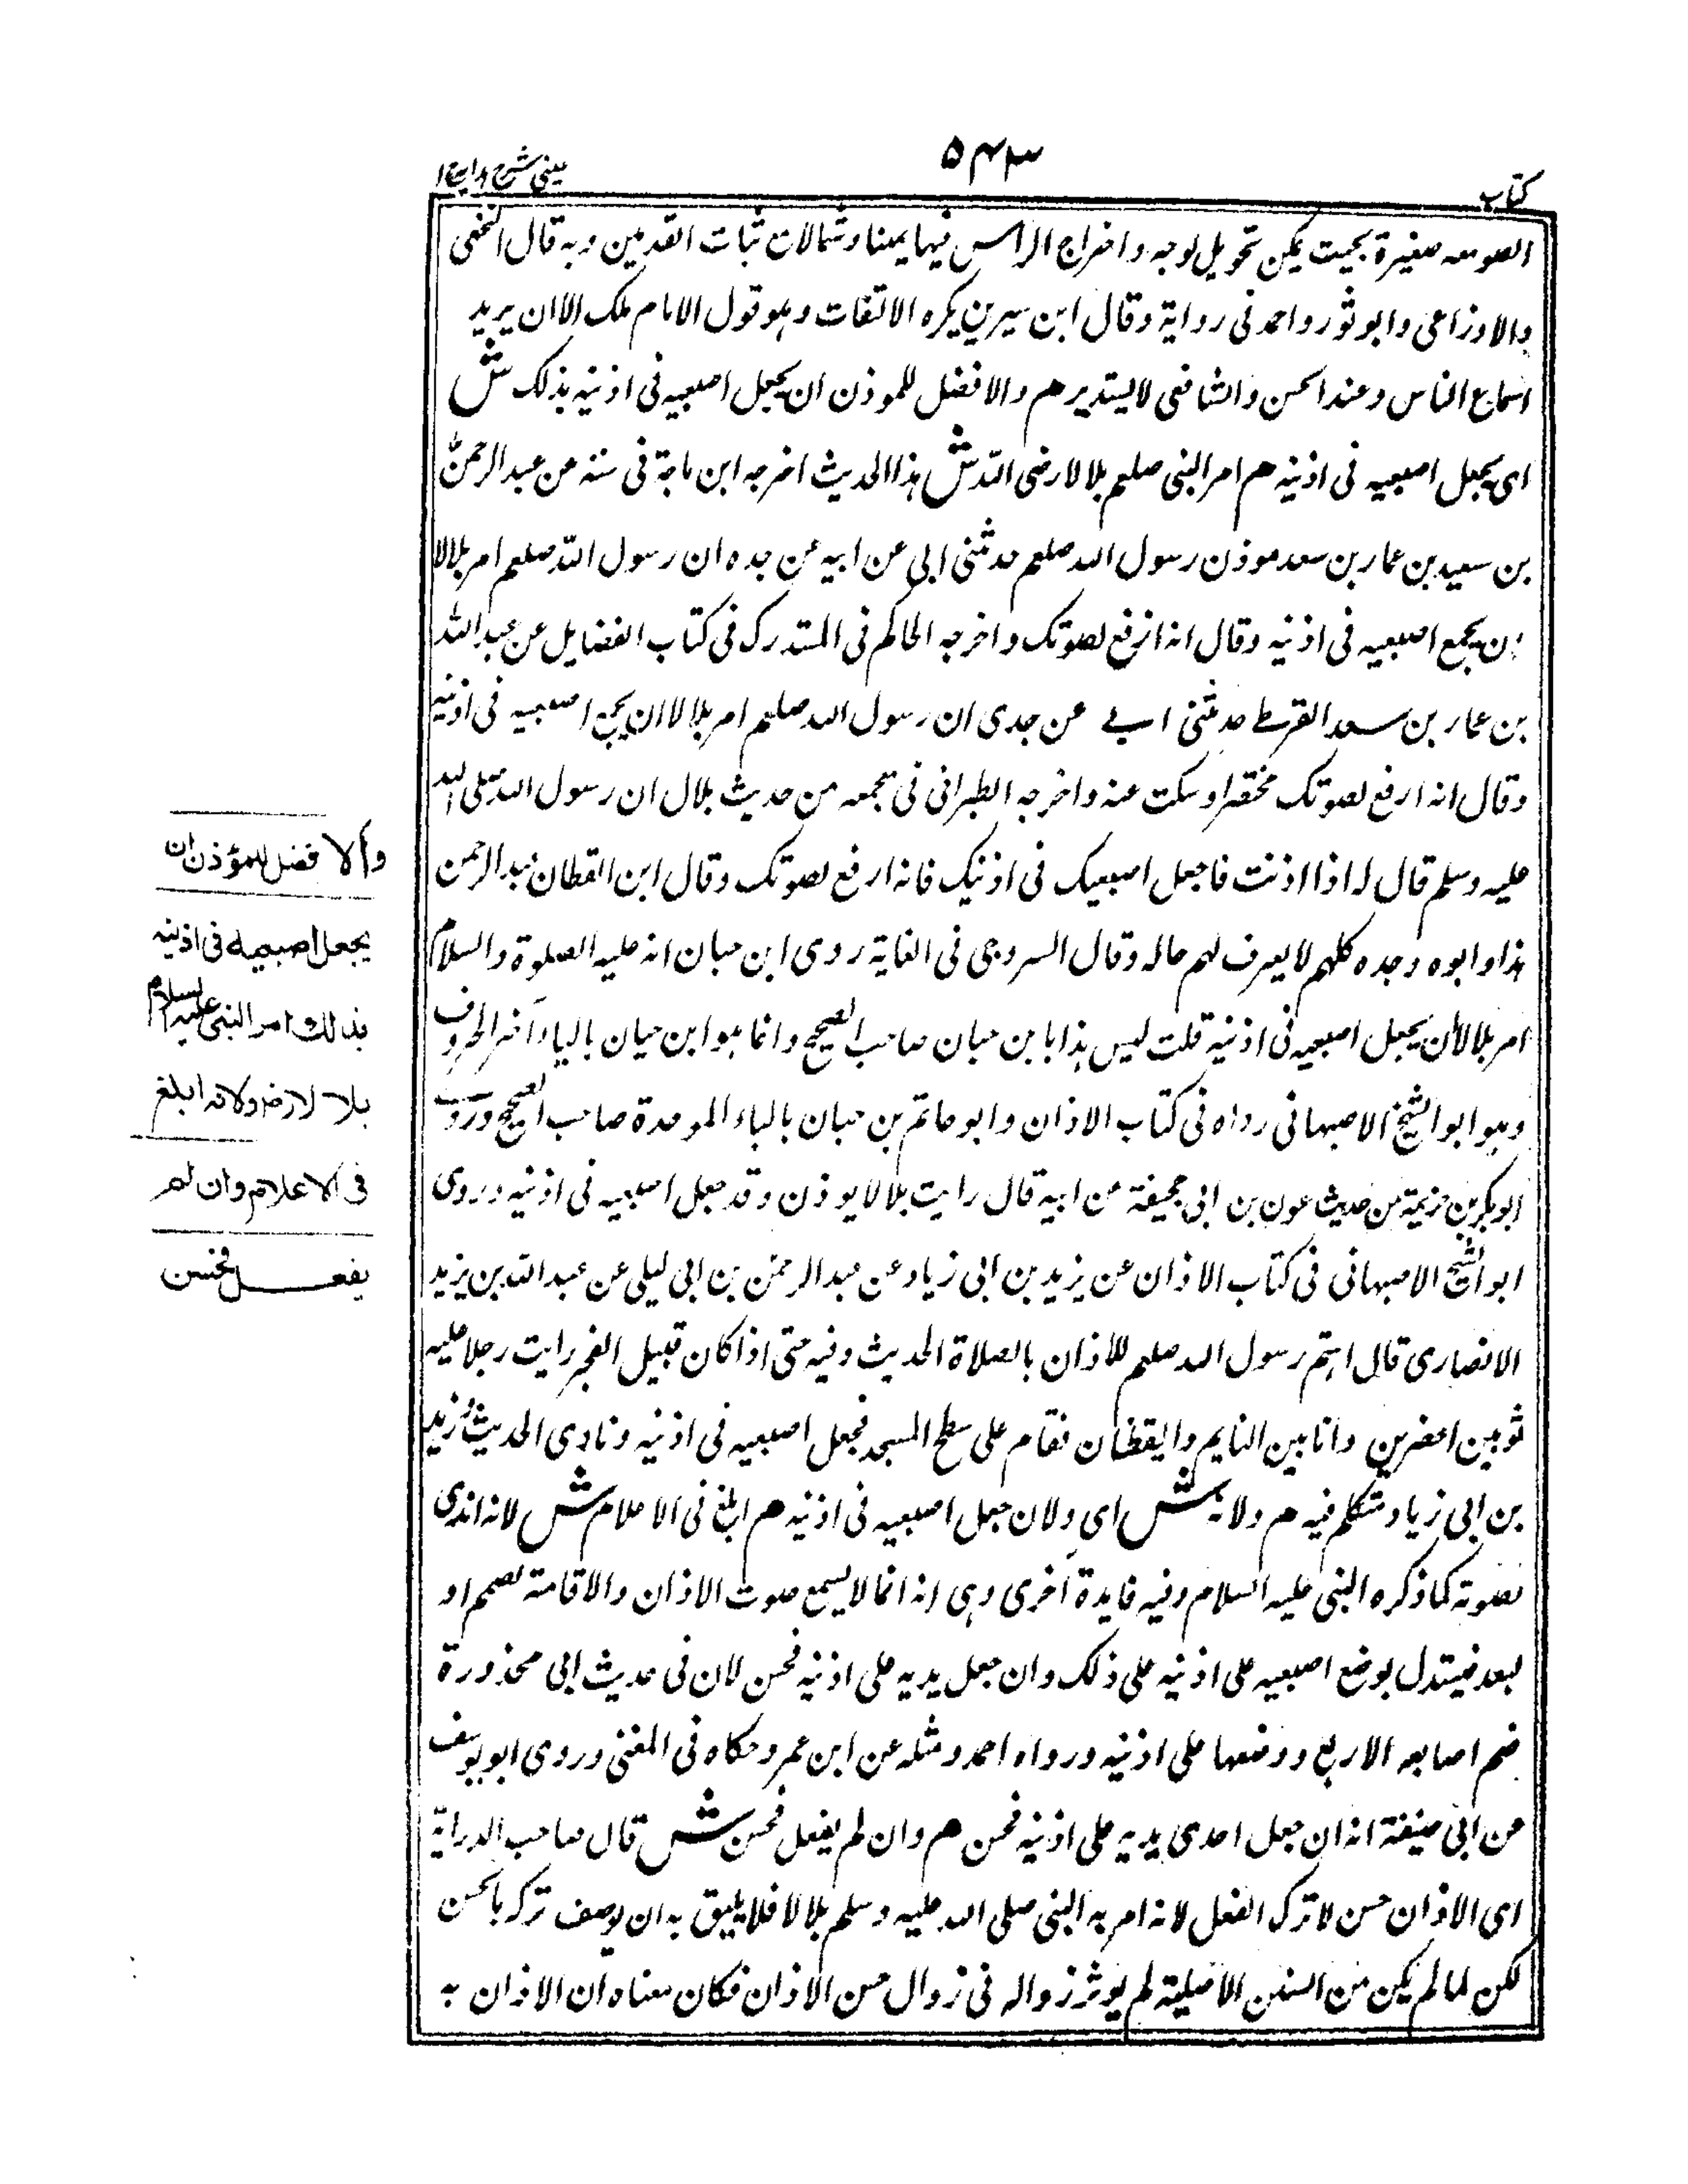 كتاب
٥٤٣
عينى شرح هدايه ج١
الصومعه صغيرة بحيث يمكن تحويل لوجه واخراج الراس فيها يمينا وشمالا ن ثبات القدمين وبه قال النخعى
والاوزاعى وابو ثور واحمد فى رواية وقال ابن سيرين يكره الالتفات وهو قول الامام ملك الا ان يريد
اسماع الناس وعند الحسن والشافعى لا يستدير هم والافضل للموذن ان يجعل اصبعيه فى اذنيه بذلك ش
اى يجعل اصبعيه فى اذنيه هم امر النبى صلعم بلالا رضى الله ش هذا الحديث اخرجه ابن ماجة فى سننه عن عبد الرحمن
بن سعيد بن عمار بن سعد موذن رسول الله صلعم حدثنى ابى عن ابيه عن جده ان رسول الله صلعم امر بلالا
ان يجمع اصبعيه فى اذنيه وقال انه ارفع لصوتك واخرجه الحاكم فى المستدرك فى كتاب الفضايل عن عبد الله
بن عمار بن سعد القرظ حدثنى ابى عن جدى ان رسول الله صلعم امر بلالا ان يجمع اصبعيه فى اذنيه
وقال انه ارفع لصوتك مختصرا وسكت عنه واخرجه الطبرانى فى معجمه من حديث بلال ان رسول الله صلى الله
عليه وسلم قال له اذا اذنت فاجعل اصبعيك فى اذنيك فانه ارفع لصوتك وقال ابن القطان عبد الرحمن
هذا وابوه وجده كلهم لا يعرف لهم حاله وقال السروجى فى الغاية روى ابن حبان انه عليه الصلوة والسلام
امر بلالا ان يجعل اصبعيه فى اذنيه قلت ليس هذا بابن حبان صاحب الصحيح وانما هو ابن حيان بالياء آخر الحروف
وهو ابو الشيخ الاصبهانى رواه فى كتاب الاذان وابو حاتم بن حبان بالباء الموحدة صاحب الصحيح وروى
ابو بكر بن خزيمة من حديث عون بن ابى جحيفة عن ابيه قال رايت بلالا يوذن وقد جعل اصبعيه فى اذنيه وروى
ابو الشيخ الاصبهانى فى كتاب الاذان عن يزيد بن ابى زياد عن عبد الرحمن بن ابى ليلى عن عبد الله بن يزيد
الانصارى قال اهتم رسول الله صلعم للأذان بالصلاة الحديث وفيه حتى اذا كان قبيل الفجر رايت رجلا عليه
ثوبين اخضرين وانا بين النايم واليقظان فقام على سطح المسجد فجعل اصبعيه فى اذنيه ونادى الحديث ويزيد
بن ابى زياد متكلم فيه هم ولانه ش اى ولان جعل اصبعيه فى اذنيه هم ابلغ فى الاعلام ش لانه اندى
لصوته كما ذكره النبى عليه السلام وفيه فايدة آخرى وهى انه انما لا يسمع صوت الاذان والاقامة لصمم او
لبعد فيستدل بوضع اصبعيه على اذنيه على ذلك وان جعل يديه على اذنيه فحسن لان فى حديث ابى محذورة
ضم اصابعه الاربع ووضعها على اذنيه ورواه احمد ومثله عن ابن عمر وحكاه فى المغنى وروى ابو يوسف
عن ابى حنيفة انه ان جعل احدى يديه على اذنيه فحسن هم وان لم يفعل فحسن ش قال صاحب الدراية
اى الاذان حسن لا ترك الفعل لانه امر به النبى صلى الله عليه وسلم بلالا فلا يليق به ان يوصف تركه بالحسن
لكن لما لم يكن من السنن الاصلية لم يوثر زواله فى زوال حسن الاذان فكان معناه ان الاذان به
والافضل للمؤذن ان
يجعل اصبعيه فى اذنيه
بذالك امر النبى عليه السلام
بلالا رض ولانه ابلغ
فى الاعلام وان لم
يفعل فحسن